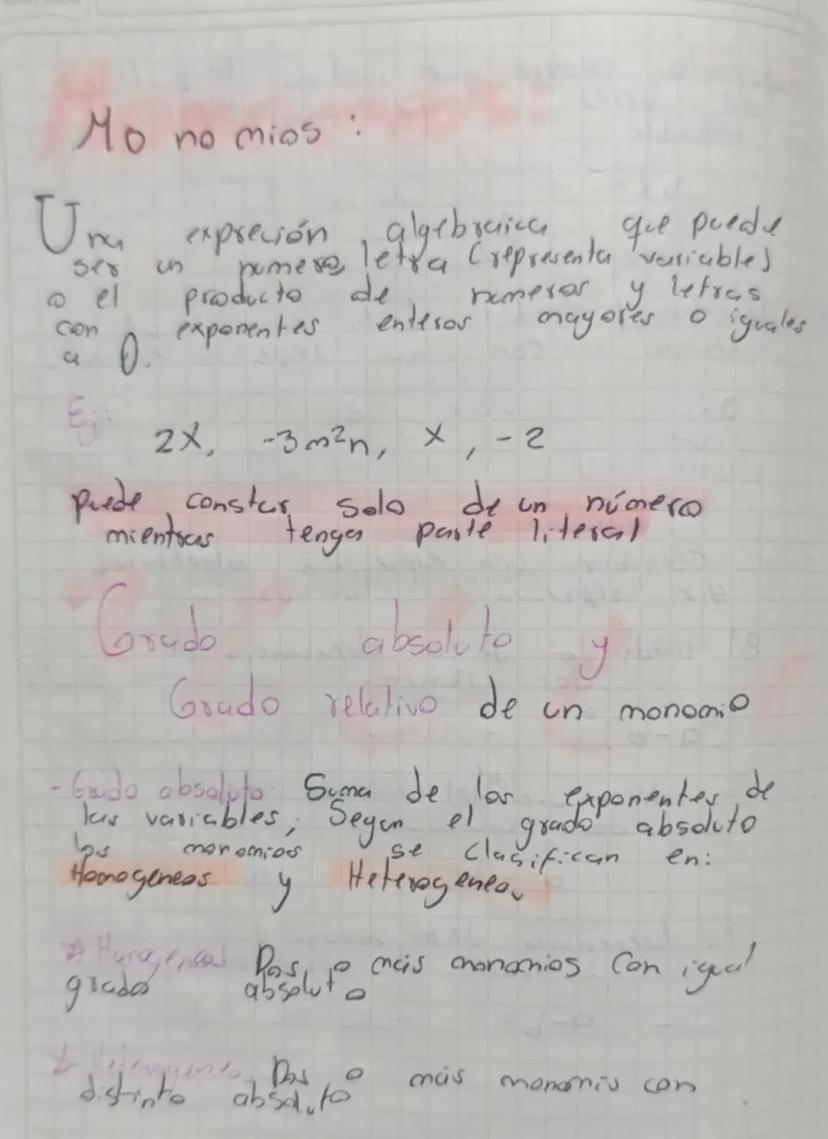 Monomios:
Una expreción algebraica que puede
ser un numero, letra (representa variable)
o el producto de numeros y letras
con exponentes enteros mayores o iguales
a 0.
Ej:
2x, -3m²n, x, -2
puede constar solo de un número
mientras tenga parte literal
Grado absoluto y
Grado relativo de un monomio
- Grado absoluto: Suma de los exponentes de
las variables, Segun el grado absoluto
los monomios se clasifican en:
Homogeneos y Heterogeneo.
* Homogeneos Dos o más monomios con igual
grado absoluto
* Heterogeneo. Dos o más monomis con
distinto absoluto